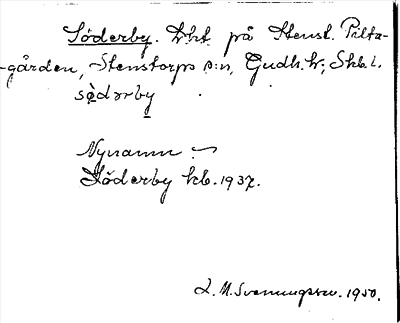 Söderby. Lht på Stenst. Pilta-
-gården, Stenstorps s:n, Gudh. hr, Skb. l.
sødərby
Nynamn
Söderby kb. 1937.
L. M. Svenungsson. 1950.